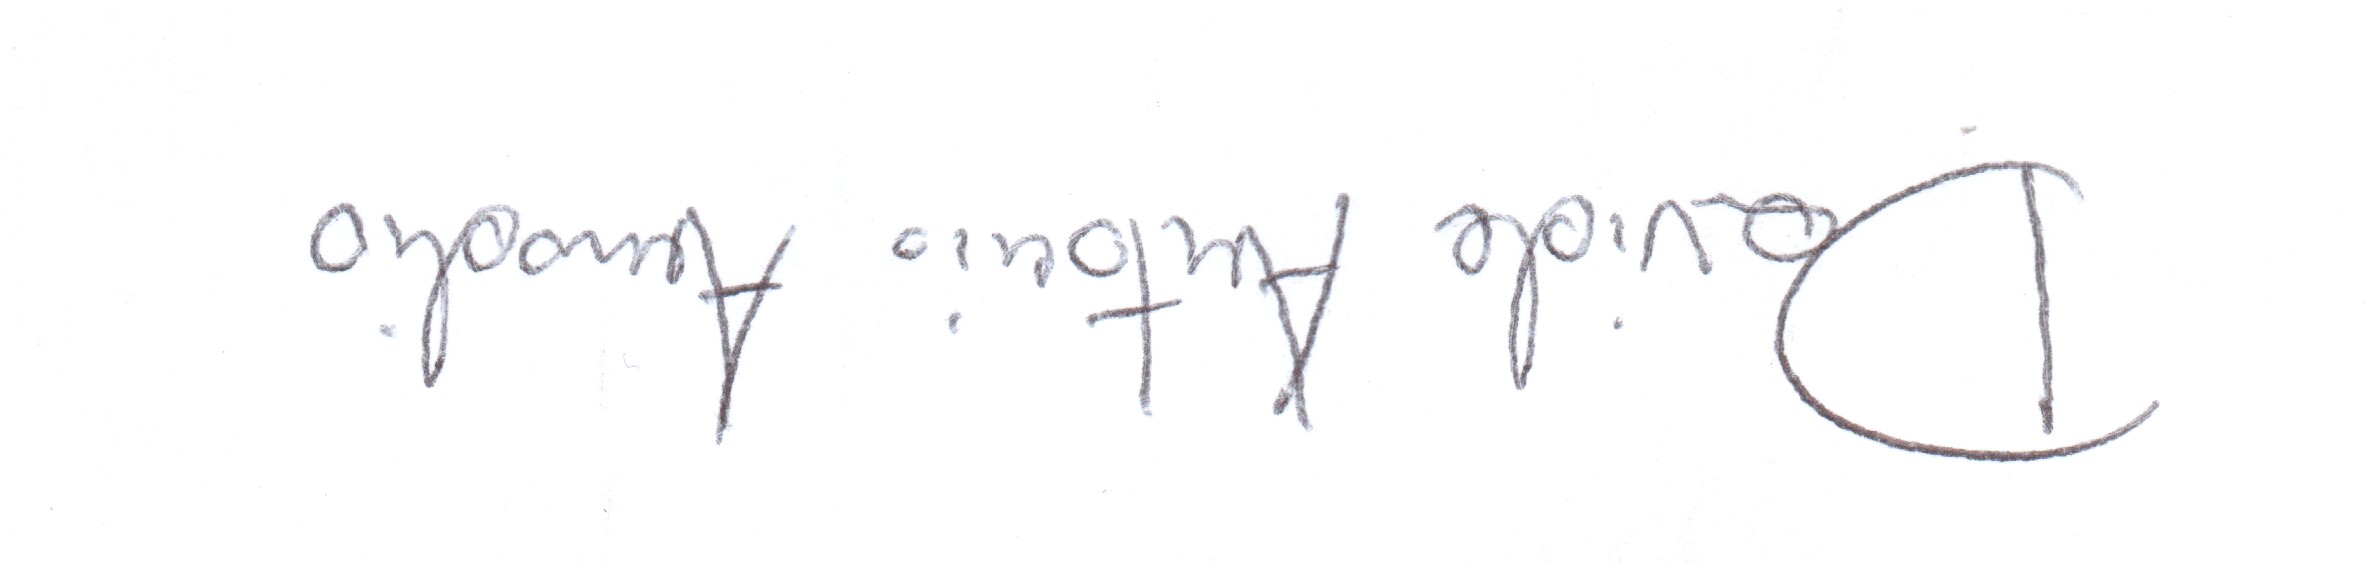 Davide Antonio Amodio